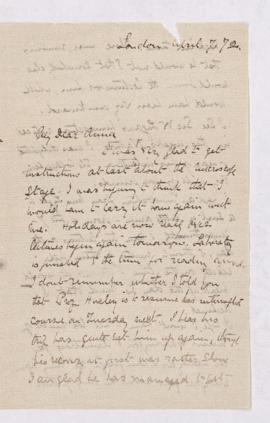 London April 7. 72.
My Dear Anna
I was very glad to get
instructions at last about the microscope
Stage. I was beginning to think that I
would have to carry it home again with
me. Holidays are now nearly over.
Lectures begin again tomorrow. Laboratory
is finished. & the time for reading
I don't remember whether I told you
that Prof Huxley is to resume his interrupted
course on Tuesday next. I hear his
trip has quite set him up again, though
his recovery at first was rather slow.
I am glad he has managed to get